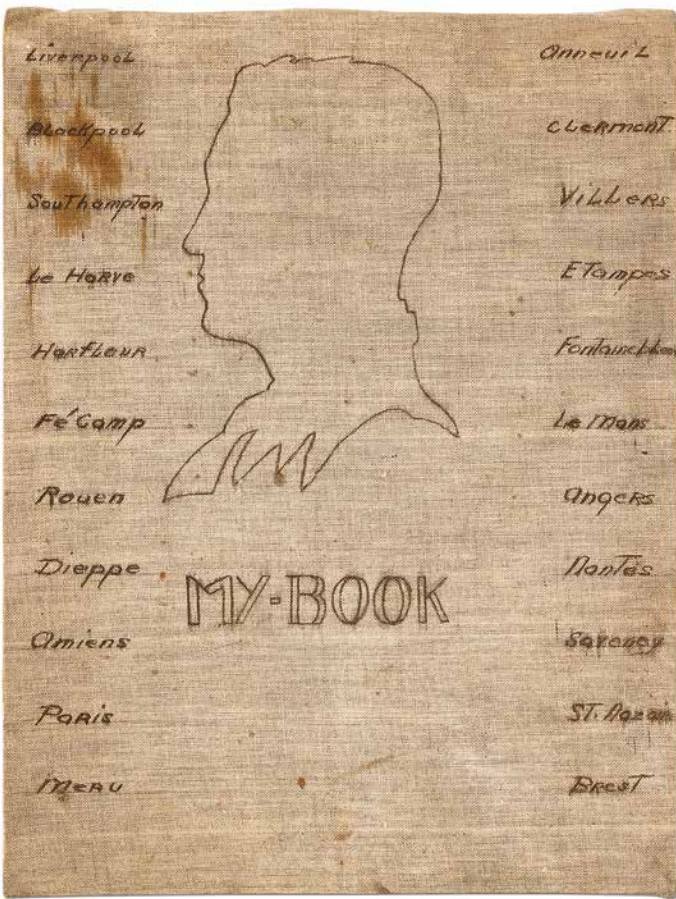 Liverpool
Blackpool
Southampton
Le Harve
Harfleur
Fé Camp
Rouen
Dieppe
Amiens
Paris
Meru
MY-BOOK
Anneuil
Clermont
Villers
Etampes
Fontainebleau
Le Mans
Angers
Nantes
Saveney
St. Nazaire
Brest